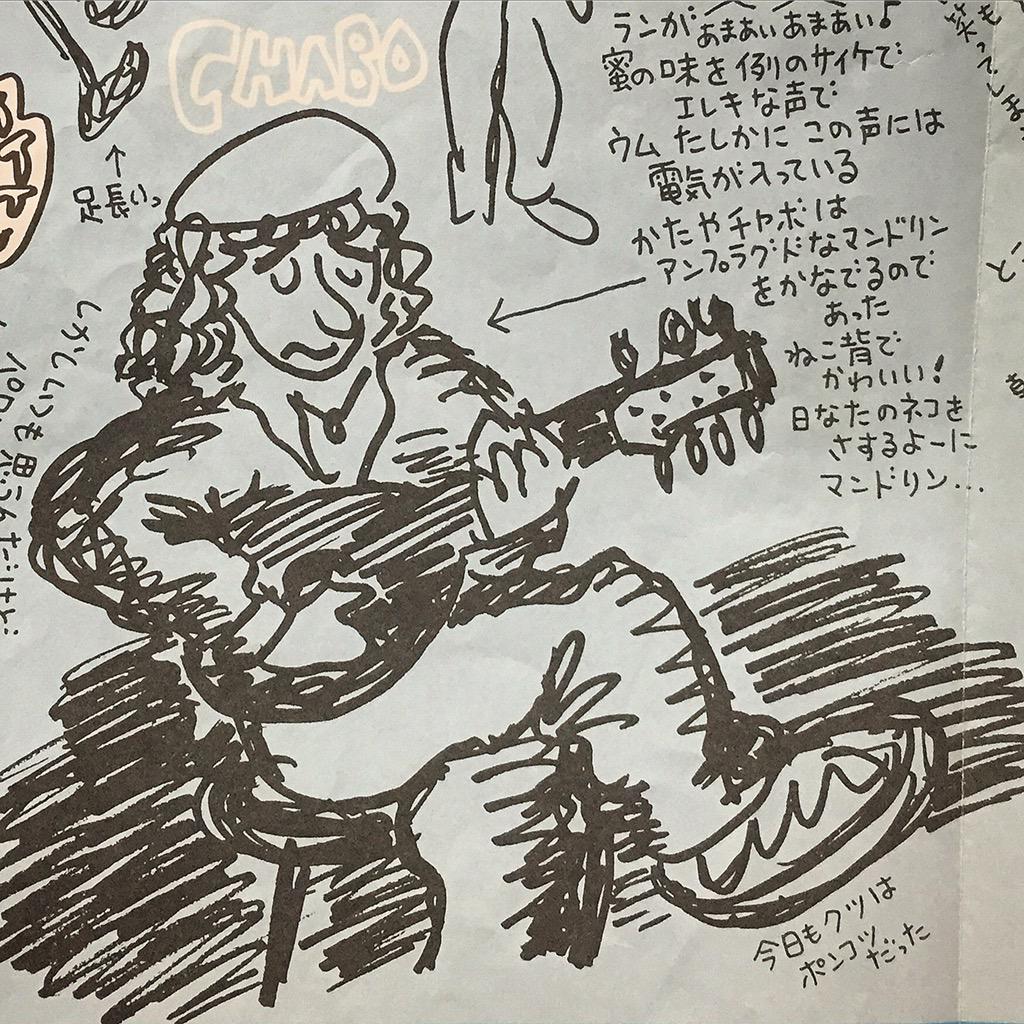 CHABO
ランが あまあぃあまあぃ♪
蜜の味を例のサイケで
エレキな声で
ウム たしかに この声には
電気が入っている
かたやチャボは
アンプラグドなマンドリン
をかなでるので
あった
ねこ背で
かわいい!
日なたのネコを
さするよーに
マンドリン...
↑
足長いっ
しかしいつも思うんだけど
今日もクツは
ポンコツ
だった